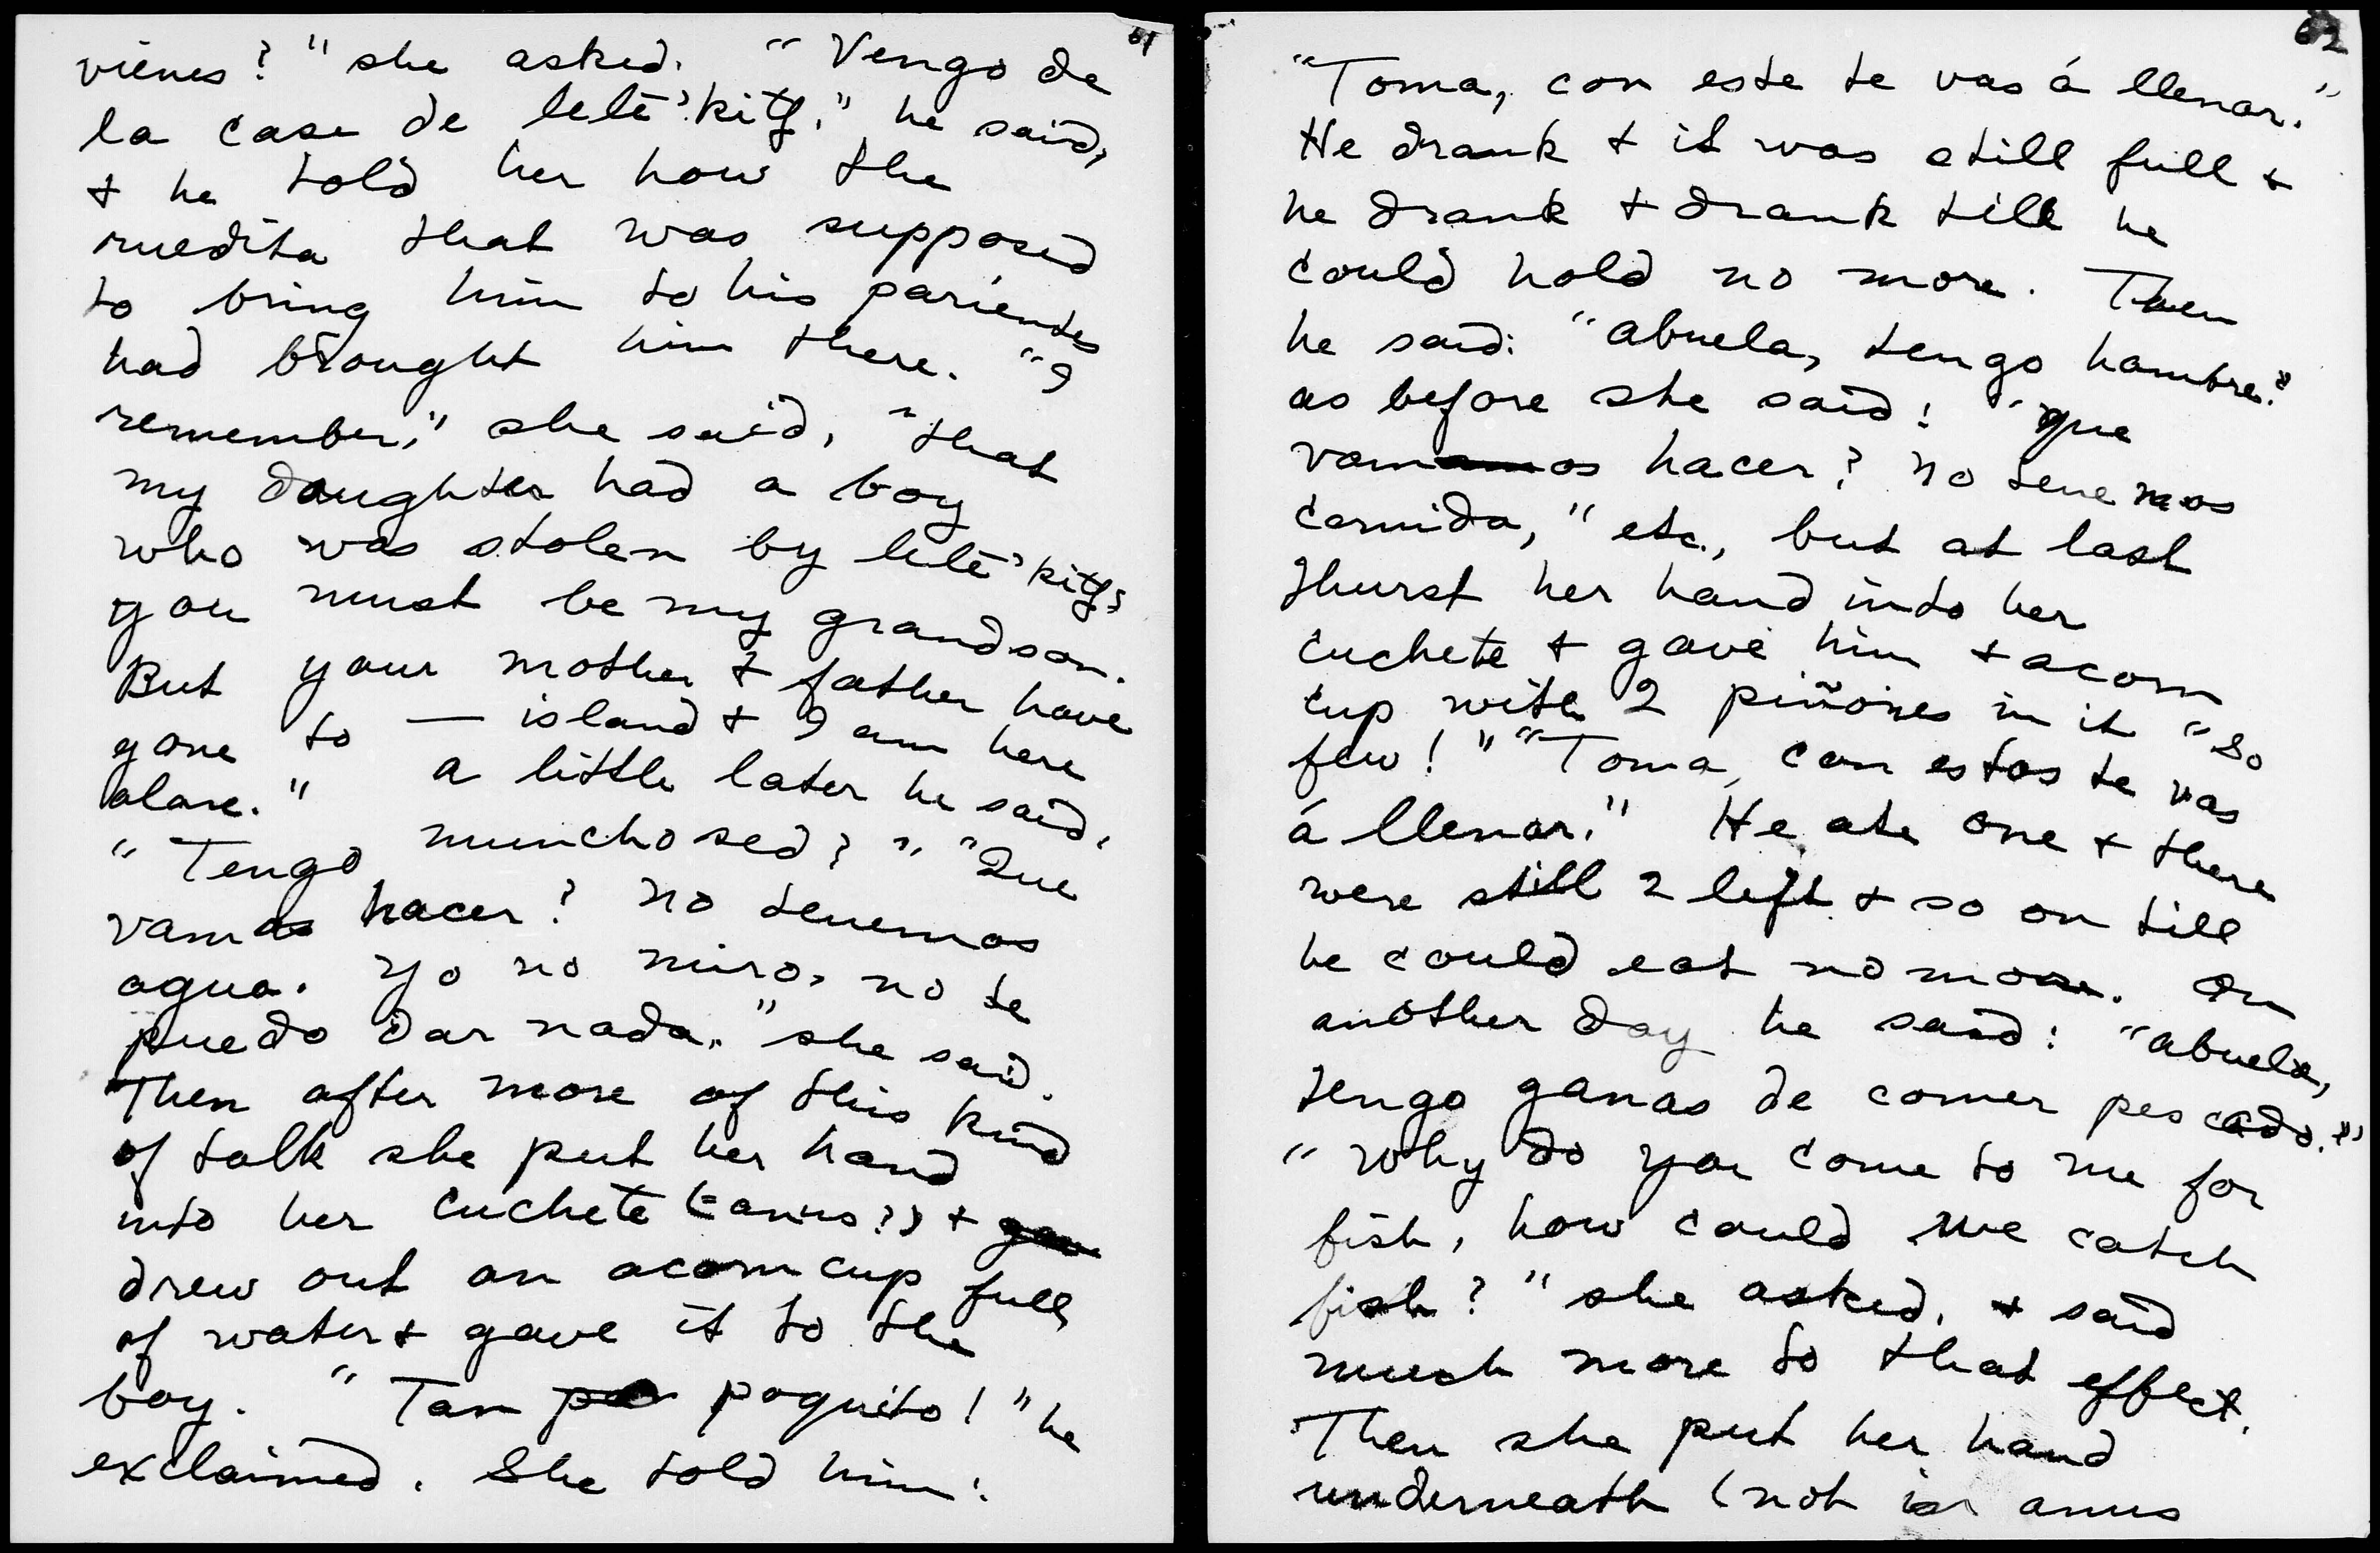 61
vienes?" she asked. "Vengo de
la case de lelē'kitʃ," he said,
+ he told her how the
ruedita that was supposed
to bring him to his parientes
had brought him there. "I
remember," she said, "that
my daughter had a boy
who was stolen by lelē'kitʃ,
you must be my grandson.
But your mother & father have
gone to — island + I am here
alone." A little later he said,
"Tengo muncho sed?" "Que
vamos hacer? No tenemos
agua. Yo no miro, no te
puedo dar nada." she said.
Then after more of this kind
of talk she put her hand
into her cuchete (=anus?) + gav
drew out an acorn cup full
of water + gave it to the
boy. "Tan poquito!" he
exclaimed. She told him:
62
"Toma, con este te vas á llenar."
He drank + it was still full +
he drank + drank till he
could hold no more. Then
he said: "Abuela, tengo hambre."
as before she said: "Que
vamos hacer? No tenemos
comida," etc., but at last
thurst her hand into her
cuchete + gave him + acorn
cup with 2 piñones in it "So
few!" "Toma, con estos te vas
á llenar." He ate one + there
were still 2 left + so on till
he could eat no more. On
another day he said: "Abuela,
tengo ganas de comer pescado."
"Why do you come to me for
fish, how could we catch
fish?" she asked, + said
much more to that effect.
Then she put her hand
underneath (not in anus